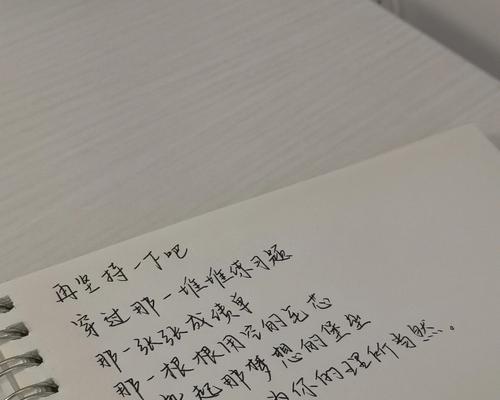 再坚持一下吧
穿过那一堆堆练习题
那一张张成绩单
那一根根用完的笔芯
起那梦想的堡垒
你的理所当然。